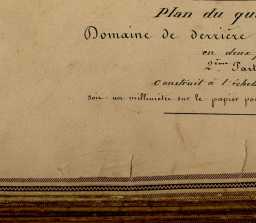 Plan du qu
Domaine de derrière
en deux p
2ème Part
Construit à l'échel
soit un millimètre sur le papier po